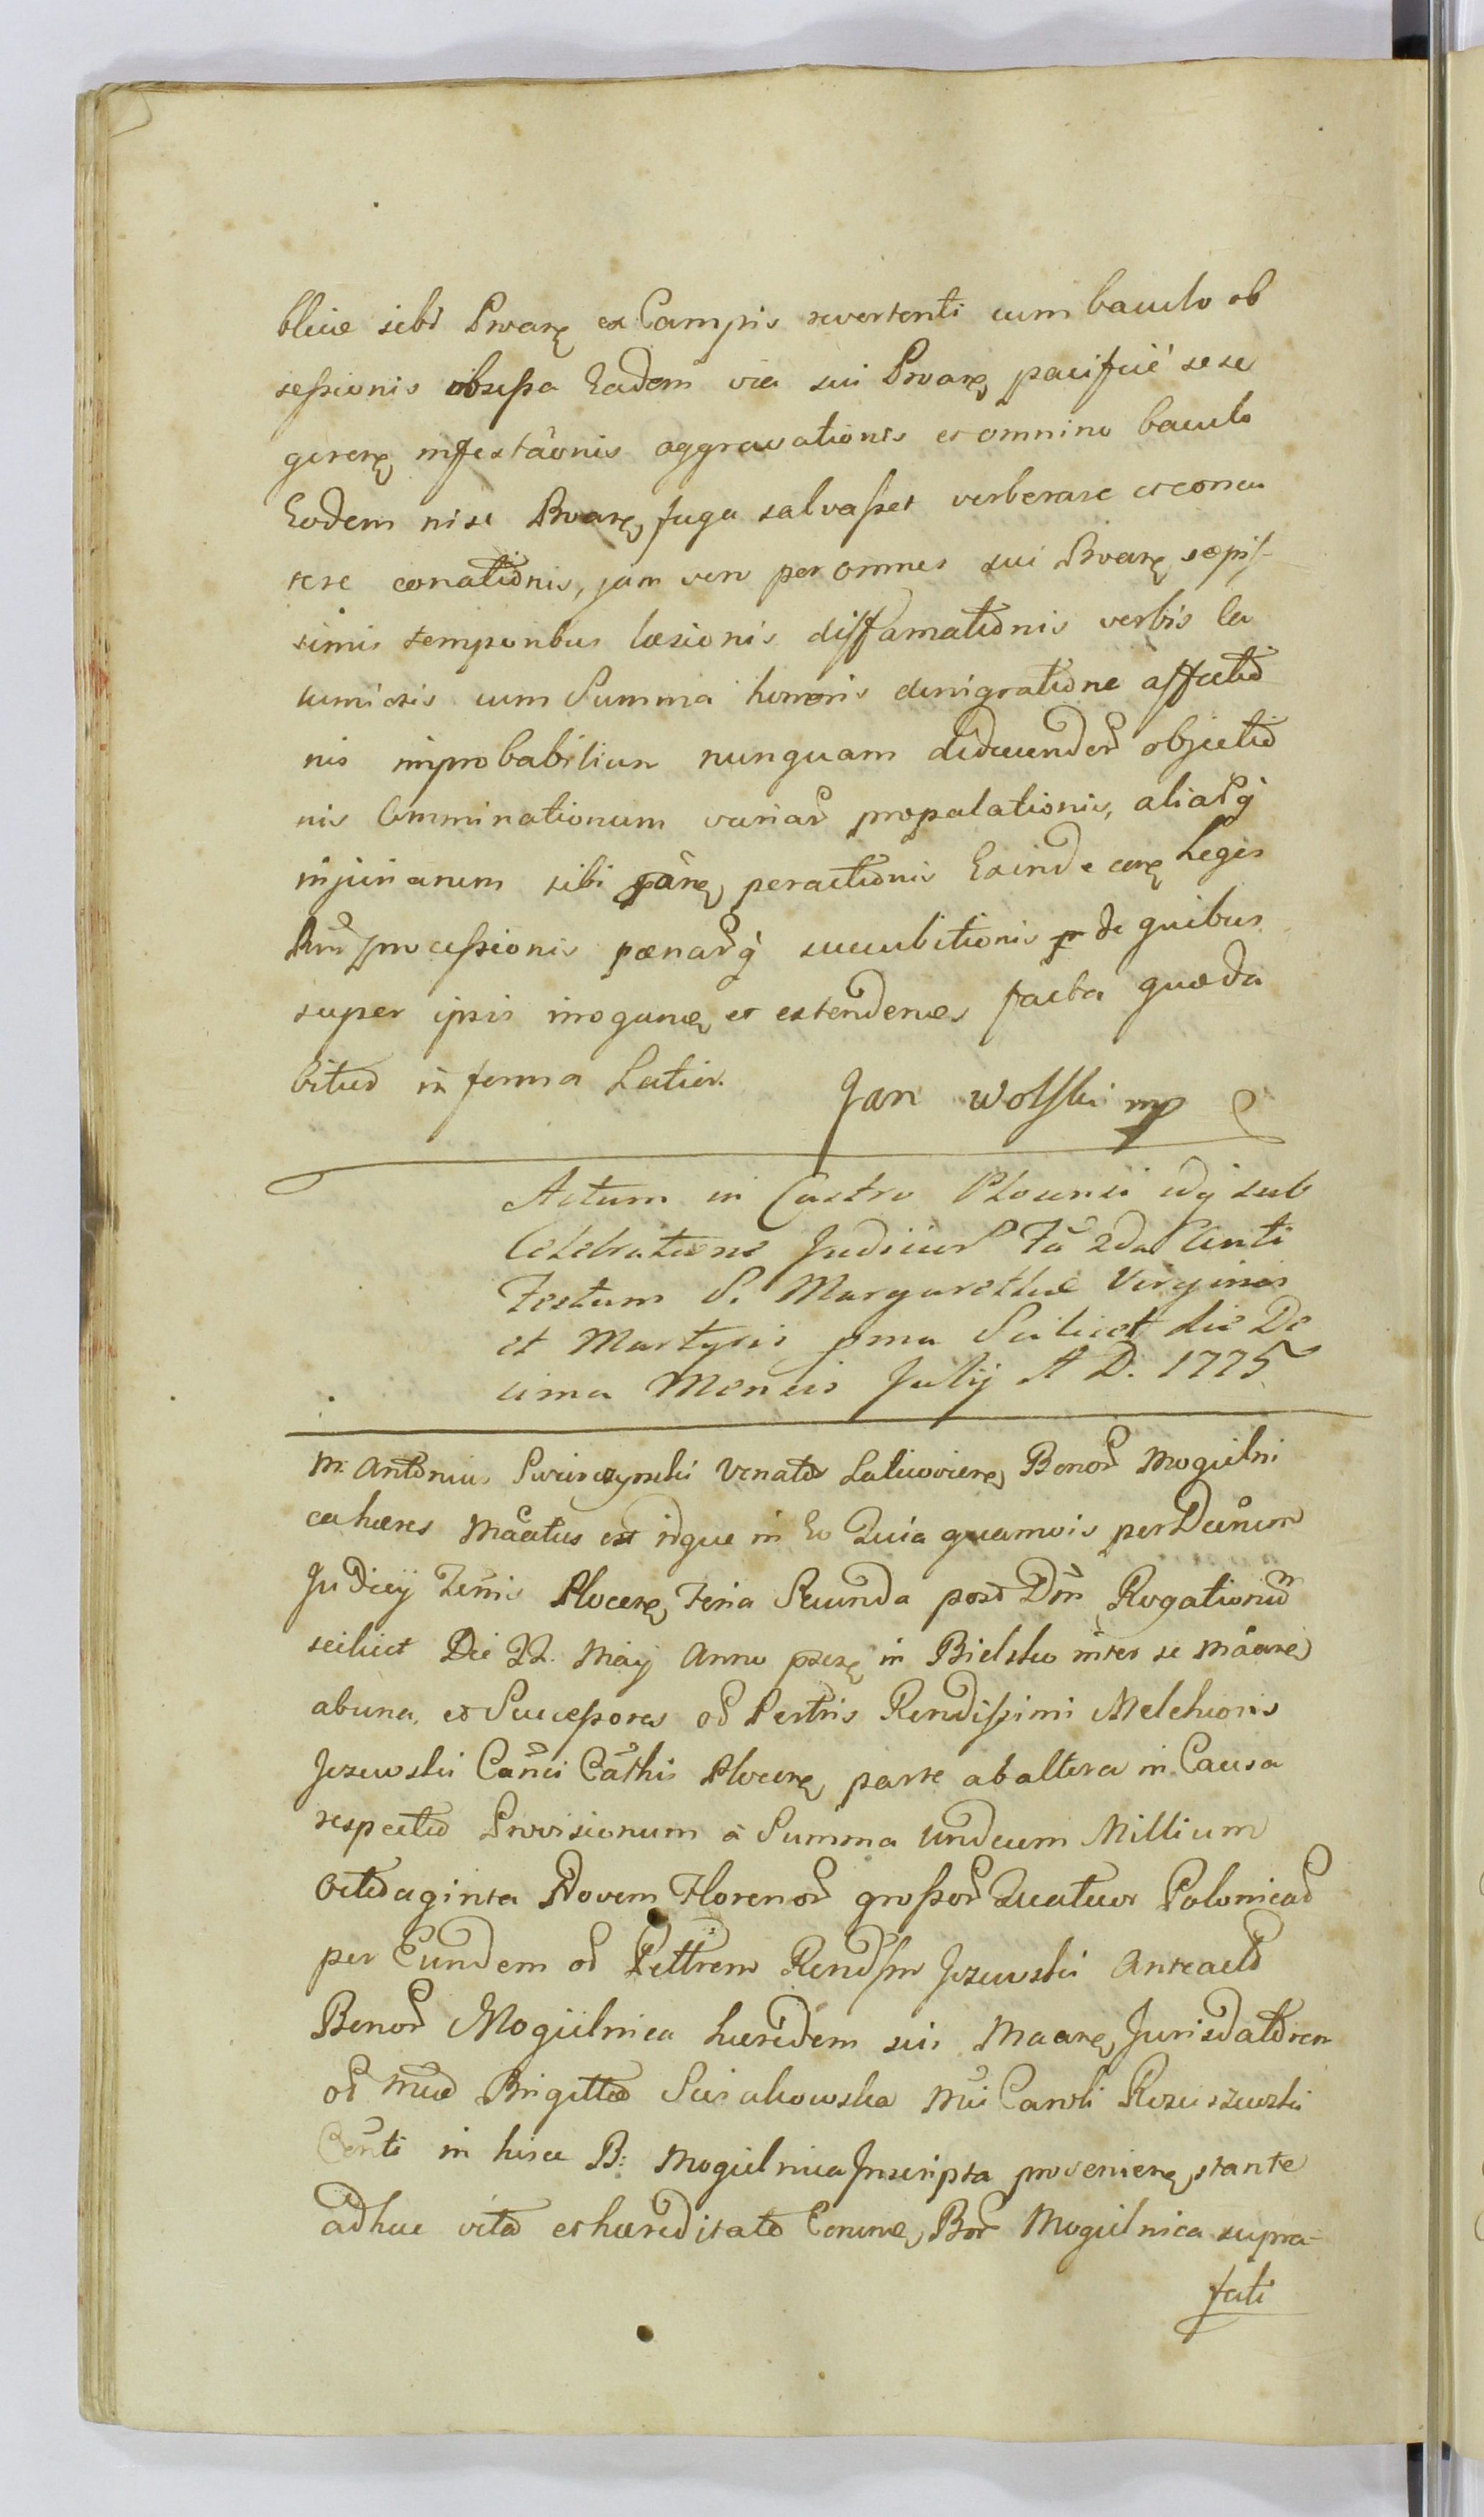 blice sibi Pnoarę ex Campis revertenti cum baculo ob
sessionis obsessa Eadem via sui Pnoarę pacificè sese
gerenę infestãonis aggravationis et omnino baculo
Eodem nisi Pnoarę fuga salvasset verberare et concu
tere conationis, jam vero per omnes sui Pnoarę sæpis-
simis temporibus læsionis diffamationis verbis ca
lumiosis cum Summa honoris denigratione affectio
nis improbabilium nunquam deducendor objectio
nis Comminationum variar propalationis, aliarq
injuriarum sibi pãnę peractionis Exinde cerę Legis
processionis pænarq succubitionis de quibus
super ipsis irroganę et extendenes facta quæda
bitur in forma Latior. Jan Wolski mp
Actum in Castro Plocensi idq sub
Celebratione Judicior Fã 2da Anti
Festum S. Margarethæ Virginis
et Martyris pma Scilicet die De
cima Mensis Julij A D. 1775
M. Antonius Swierczynski Venator Latiovicenę Bonor Mogielni
ca hæres Mãatus est idque in Eo Quia quamvis per Decũum
Judicij Terris Plocenę Feria Secunda post Dom Rogationũ
scilicet Die 22. Maij Anno pnsę in Bielsko inter se Mãanę
ab una, et Successores od Pertris Rendissimi Melchioris
Jezewski Canci Cathis Plocenę parte ab altera in Causa
respectu Provisionum a Summa Undecem Millium
Octuaginta Novem Florenor grossor Quatuor Polonicar
per Eundem od Pettrem Rendssm Jezewski Anteacto
Bonor Mogielnica hæredem suis Maanę Jurisdator
od Mcæ Brigittæ Sierakowska Mci Caroli Rosciszewski
Conti in hisce B: Mogielnica Inscripta provenienę stante
adhuc vita et hæreditate Eorunę Bor Mogielnica supra-
fati